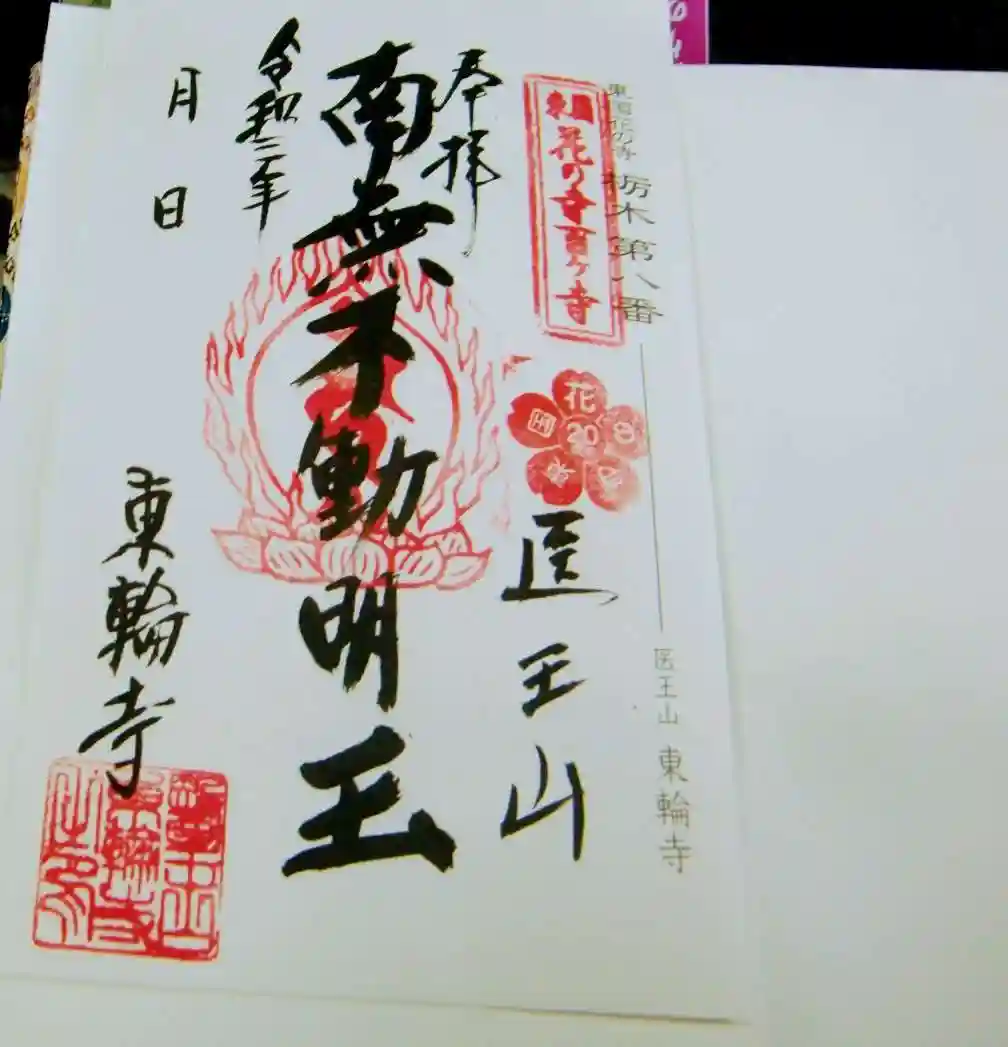 東国花の寺 栃木第八番 医王山 東輪寺
東国花の寺百ヶ寺
花
20
医王山
奉拝
南無不動明王
令和二年
月 日
東輪寺